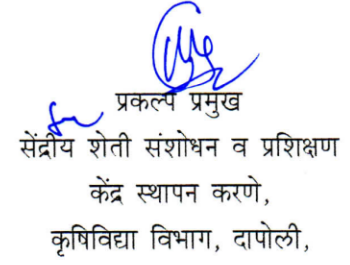 प्रकल्प प्रमुख
सेंद्रीय शेती संशोधन व प्रशिक्षण
केंद्र स्थापन करणे,
कृषिविद्या विभाग, दापोली,